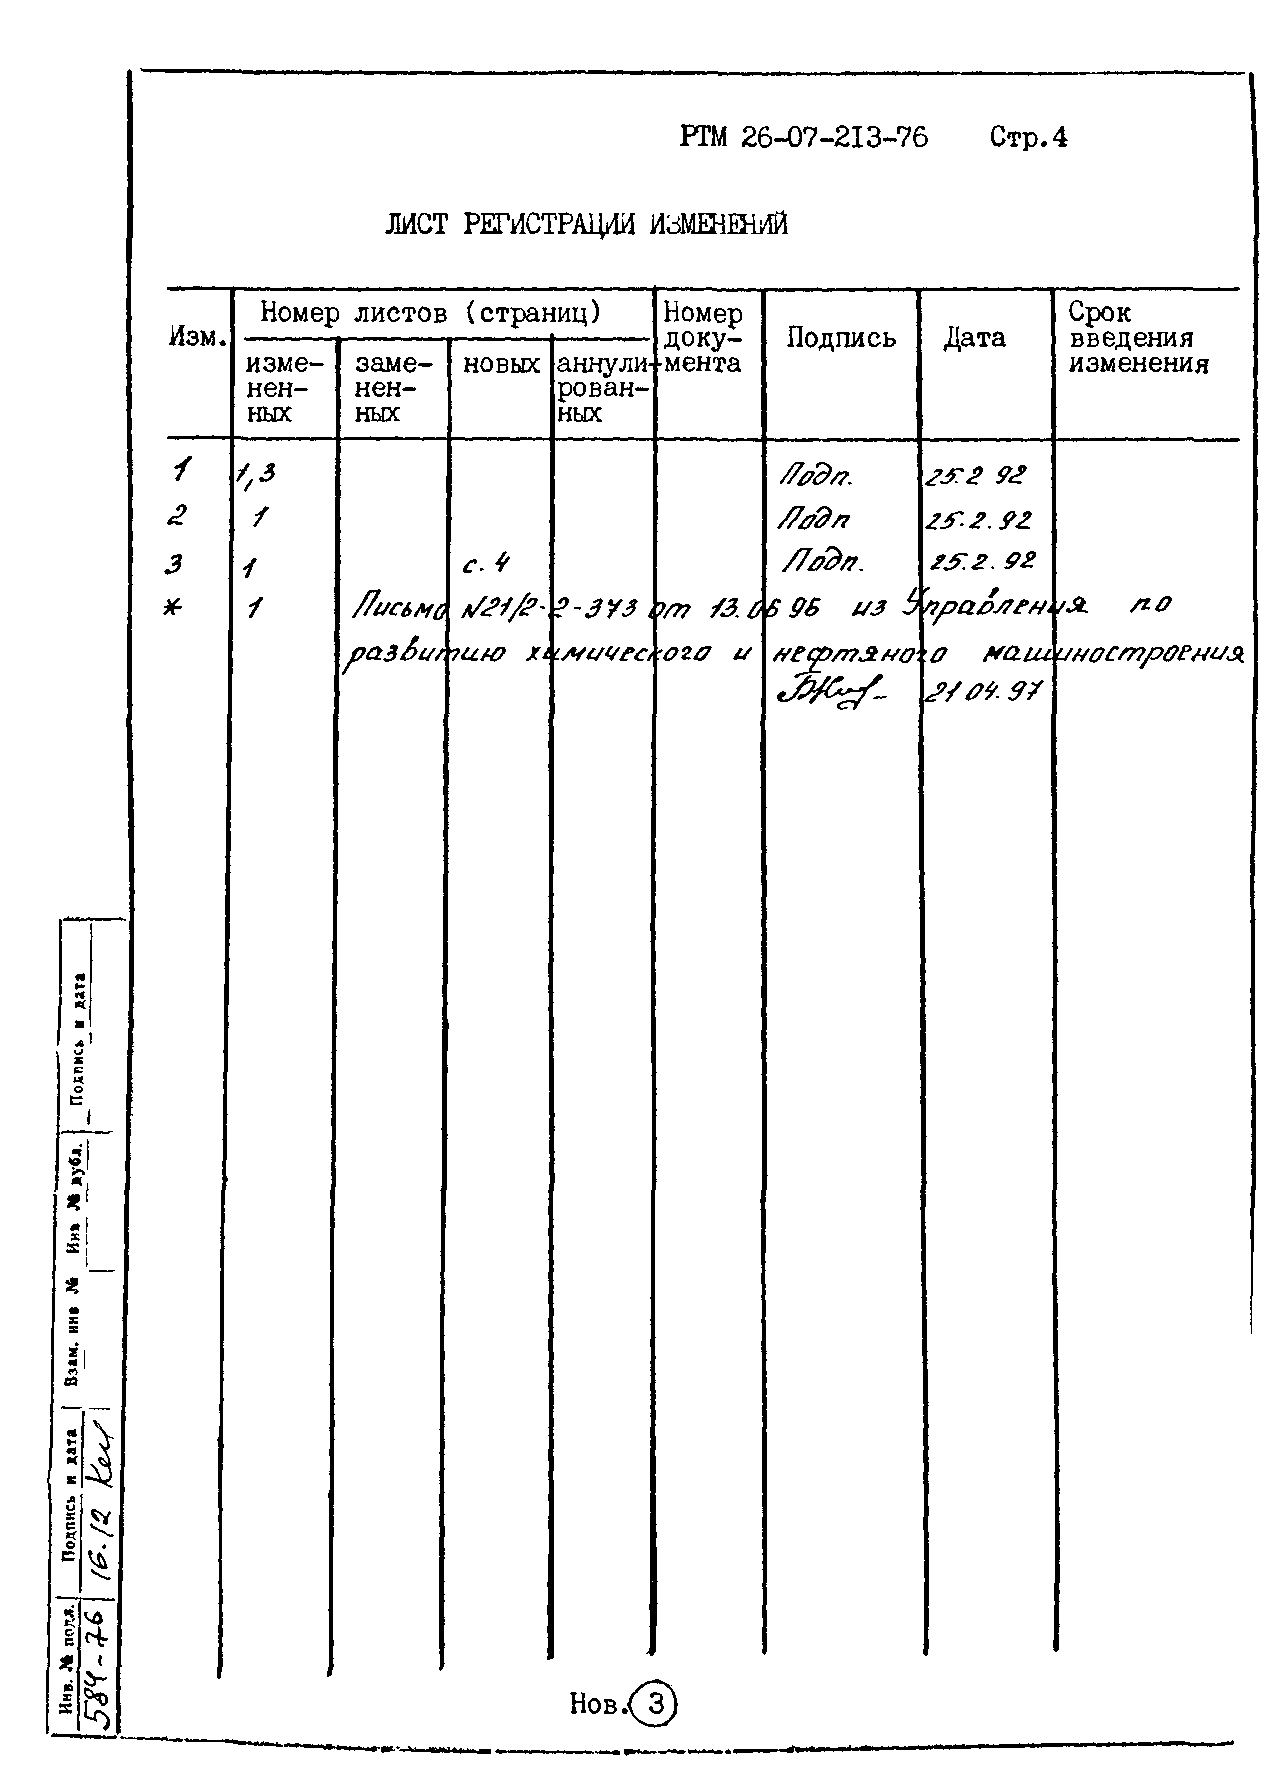 РТМ 26-07-213-76 Стр.4
ЛИСТ РЕГИСТРАЦИИ ИЗМЕНЕНИЙ
Изм.
Номер листов (страниц)
изме-
нен-
ных
заме-
нен-
ных
новых
аннули-
рован-
ных
Номер
доку-
мента
Подпись
Дата
Срок
введения
изменения
1 1,3 Подп. 25.2 92
2 1 Подп 25.2.92
3 1 с. 4 Подп. 25.2.92
* 1 Письмо №21/2-2-373 от 13.06 96 из Управления по
развитию химического и нефтяного машиностроения
21 04.97
Подпись и дата
Инв № дубл.
Взам. инв №
Подпись и дата
16.12
Инв. № подл.
584-76
Нов. 3